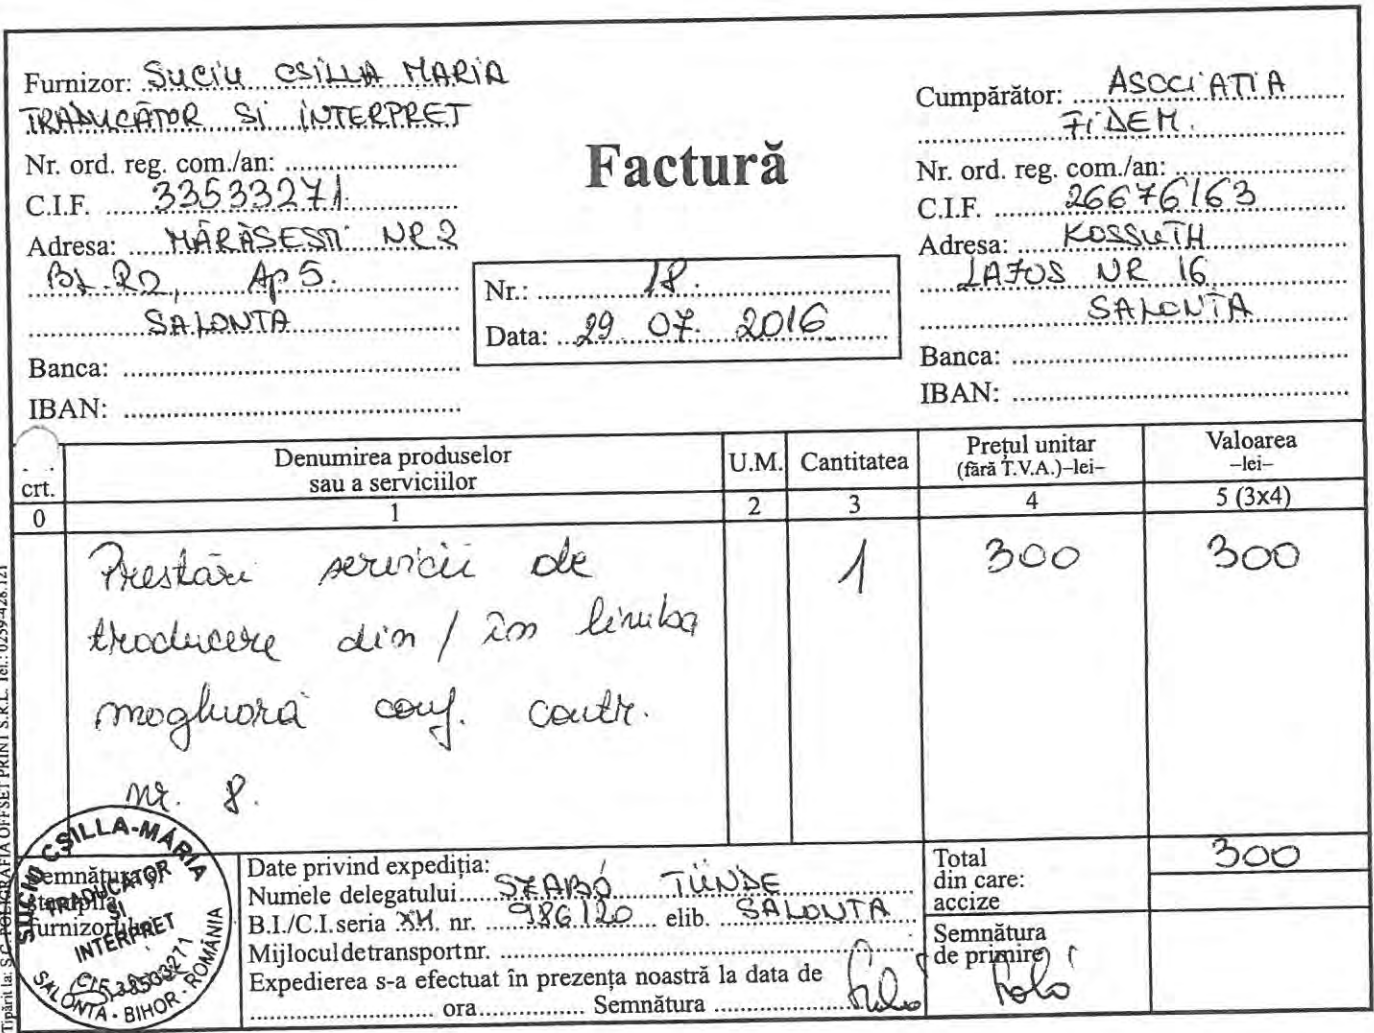 Furnizor: SUCIU CSILLA MARIA
TRADUCĂTOR SI INTERPRET
Nr. ord. reg. com./an:
C.I.F. 33533271
Adresa: MĂRĂSESTI NR 2
BL. R2, Ap 5.
SALONTA
Banca:
IBAN:
Factură
Nr.: 18.
Data: 29 07. 2016
Cumpărător: ASOCIATIA
FIDEM.
Nr. ord. reg. com./an:
C.I.F. 26676163
Adresa: KOSSUTH
LAJOS NR 16
SALONTA
Banca:
IBAN:
crt. Denumirea produselor sau a serviciilor U.M. Cantitatea Prețul unitar (fără T.V.A.)–lei– Valoarea –lei–
0 1 2 3 4 5 (3x4)
Prestări servicii de 1 300 300
traducere din / în limba
maghiară conf. contr.
nr. 8.
Semnătura și
ștampila
furnizorului
SUCIU CSILLA-MARIA
TRADUCATOR
ȘI
INTERPRET
SALONTA - BIHOR - ROMÂNIA
Date privind expediția:
Numele delegatului SZABÓ TÜNDE
B.I./C.I. seria XH nr. 986120 elib. SALONTA
Mijlocul de transport nr.
Expedierea s-a efectuat în prezența noastră la data de
ora Semnătura
Total 300
din care:
accize
Semnătura
de primire
Tipărit la: S.C. POLIGRAFIA OFFSET PRINT S.R.L. Tel.: 0259-428.121